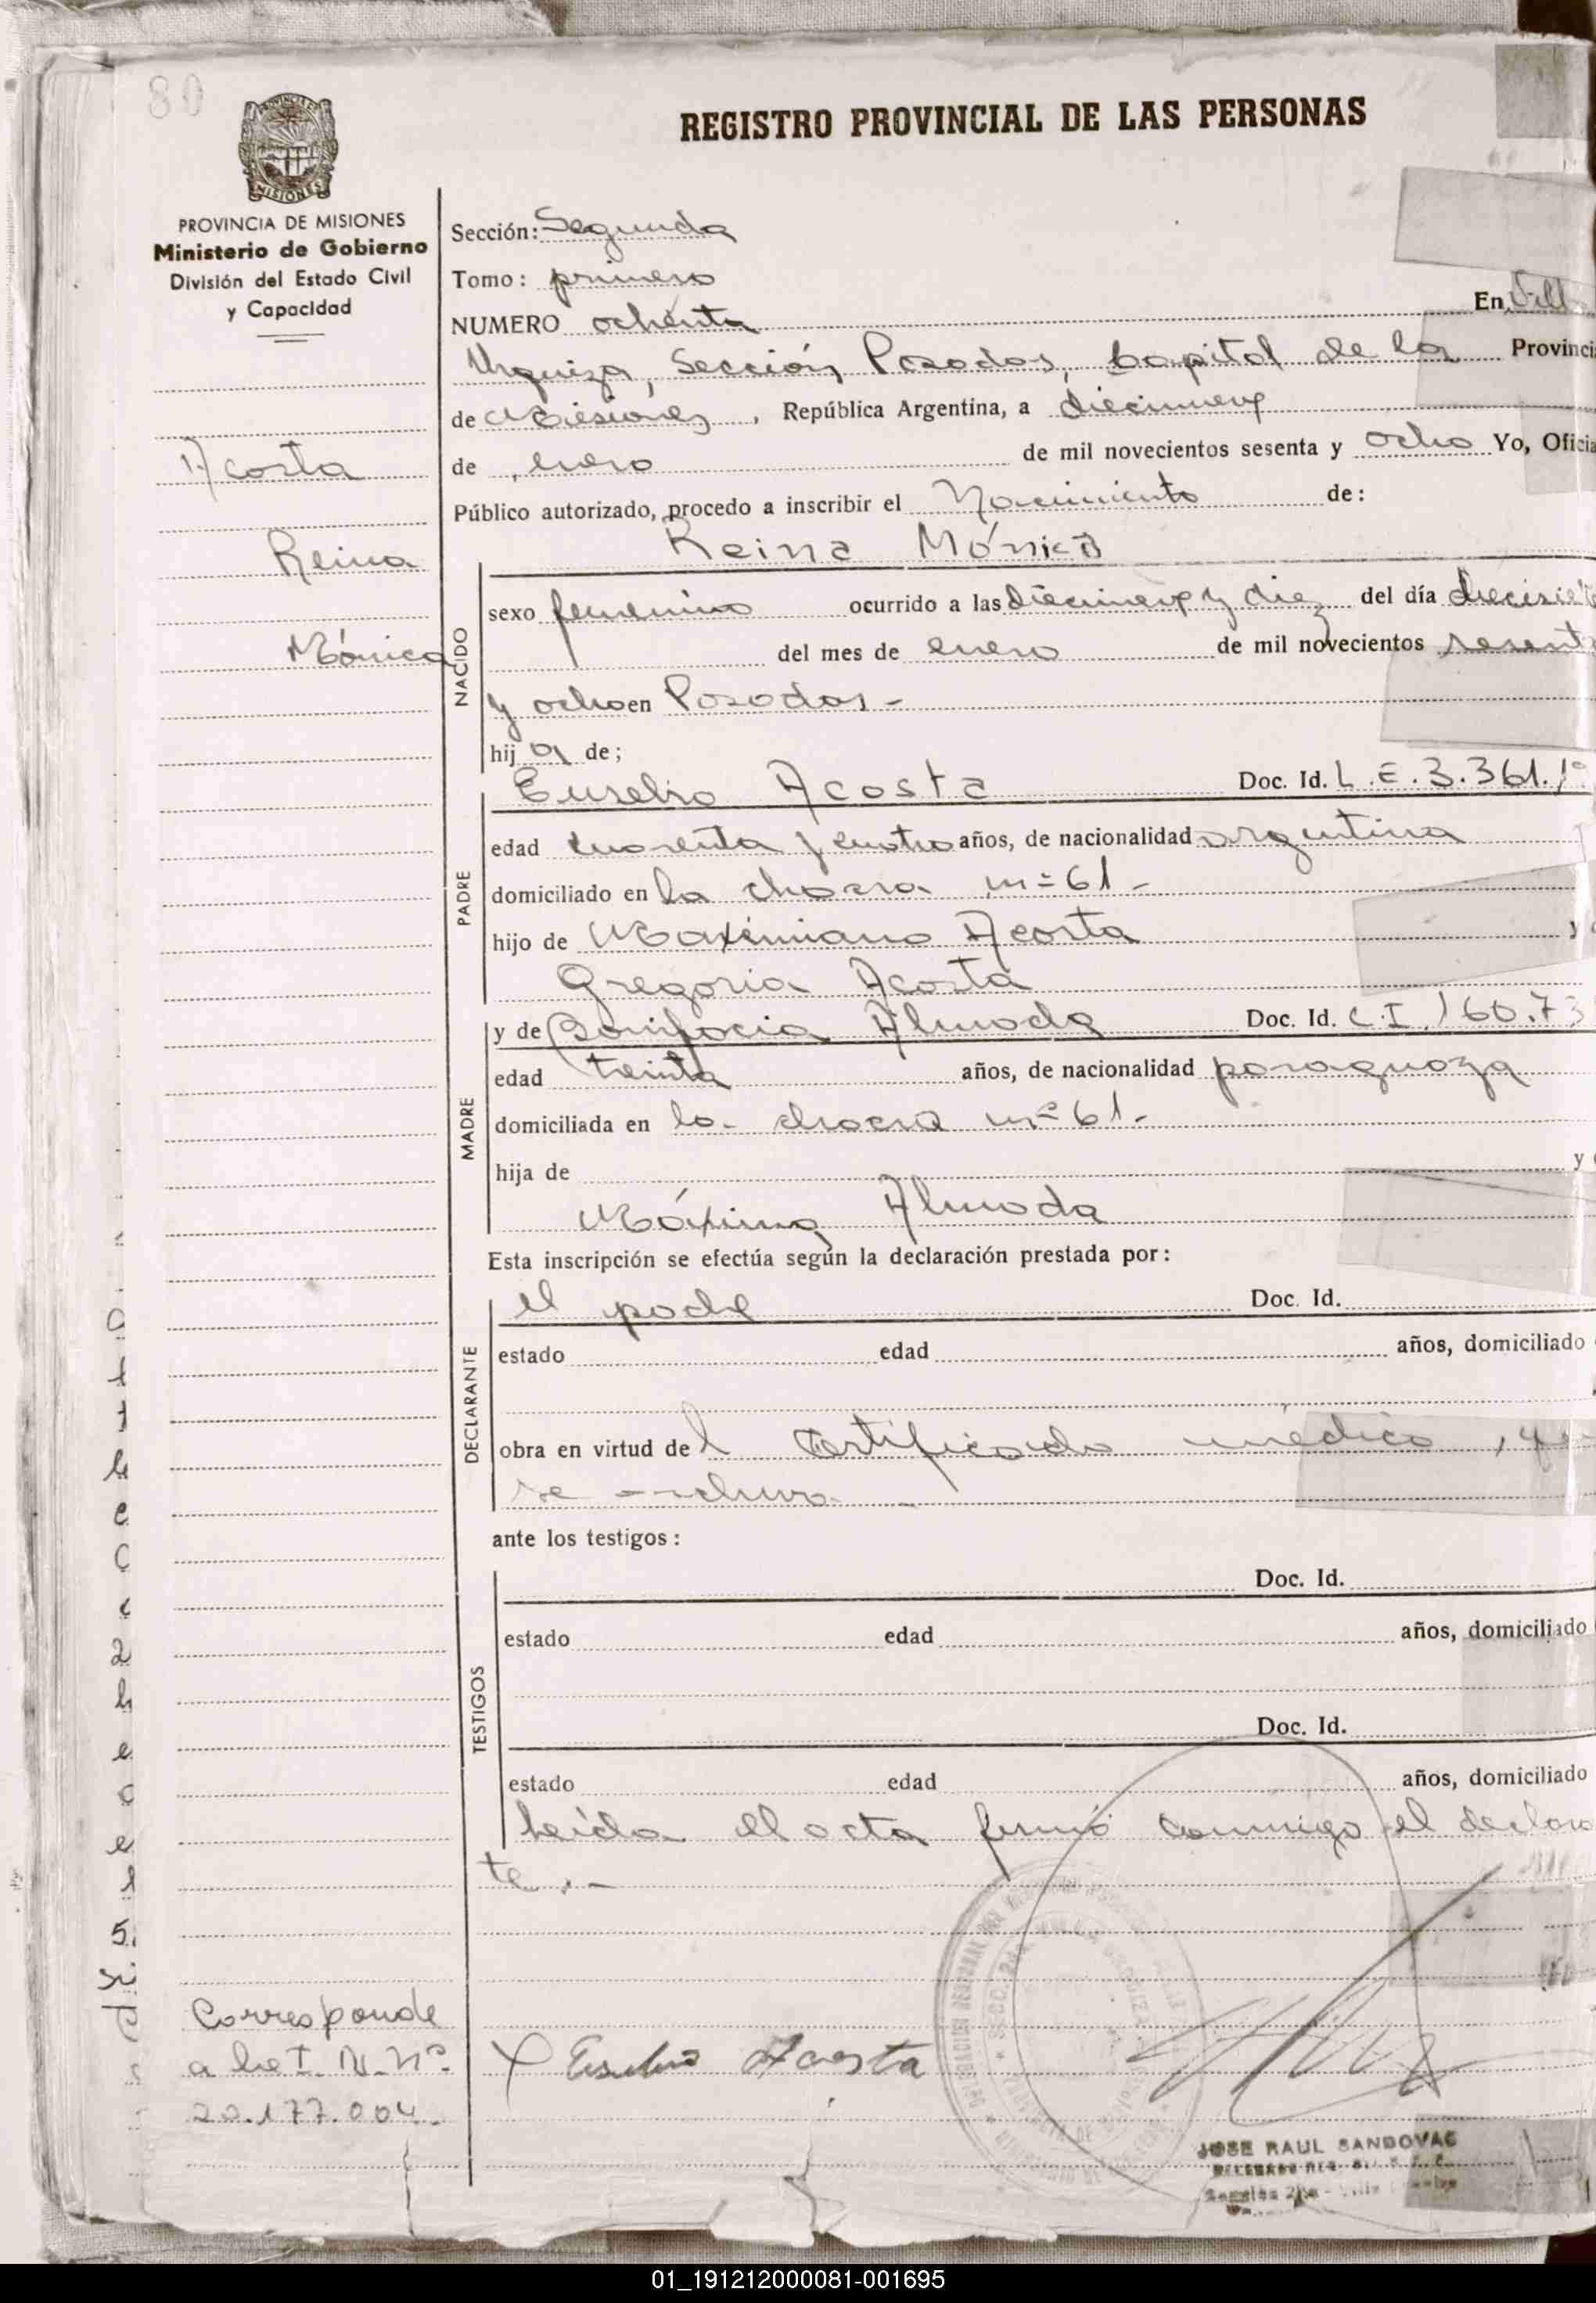 80
REGISTRO PROVINCIAL DE LAS PERSONAS
PROVINCIA DE MISIONES
Ministerio de Gobierno
División del Estado Civil
y Capacidad
Acosta
Reina
Mónica
Sección: Segunda
Tomo: primero
NUMERO ochenta En Vill
Urquiza, Sección Posadas, Capital de la Provinci
de Misiones, República Argentina, a diecinueve
de enero de mil novecientos sesenta y ocho Yo, Oficia
Público autorizado, procedo a inscribir el Nacimiento de:
Reina Mónica
NACIDO
sexo femenino ocurrido a las diecinueve y diez del día diecisiet
del mes de enero de mil novecientos sesent
y ocho en Posadas -
hij a de;
PADRE
Eusebio Acosta Doc. Id. L.E. 3.361.1
edad cuarenta y cuatro años, de nacionalidad argentina
domiciliado en la chacra nº 61 -
hijo de Maximiano Acosta y
Gregoria Acosta
MADRE
y de Bonifacia Almada Doc. Id. C.I. 160.73
edad treinta años, de nacionalidad paraguaya
domiciliada en la chacra nº 61.-
hija de y
Máxima Almada
Esta inscripción se efectúa según la declaración prestada por:
DECLARANTE
el padre Doc. Id.
estado edad años, domiciliado
obra en virtud del certificado médico, que
se archiva
ante los testigos:
TESTIGOS
Doc. Id.
estado edad años, domiciliado
Doc. Id.
estado edad años, domiciliado
Leída el acta firmó conmigo el declaran
te.-
Corresponde
a la I. N. Nº
20.177.004.-
X Eusebio Acosta
JOSE RAUL SANDOVAL
01_191212000081-001695